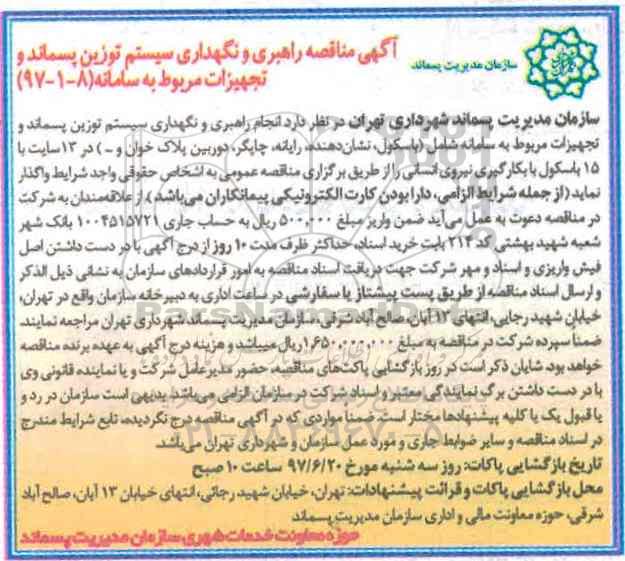 آگهی مناقصه راهبری و نگهداری سیستم توزین پسماند و
تجهیزات مربوط به سامانه(۸-۱-۹۷)
سازمان مدیریت پسماند
سازمان مدیریت پسماند شهرداری تهران در نظر دارد انجام راهبری و نگهداری سیستم توزین پسماند و
تجهیزات مربوط به سامانه شامل (باسکول، نشان‌دهنده، رایانه، چاپگر، دوربین پلاک خوان و ...) در ۱۳ سایت با
۱۵ باسکول با بکارگیری نیروی انسانی را از طریق برگزاری مناقصه عمومی به اشخاص حقوقی واجد شرایط واگذار
نماید (از جمله شرایط الزامی، دارا بودن کارت الکترونیکی پیمانکاران می‌باشد). از علاقه‌مندان به شرکت
در مناقصه دعوت به عمل می‌آید ضمن واریز مبلغ ۵۰۰,۰۰۰ ریال به حساب جاری ۱۰۰۴۵۱۵۷۲۱ بانک شهر
شعبه شهید بهشتی کد ۲۱۴ بابت خرید اسناد، حداکثر ظرف مدت ۱۰ روز از درج آگهی با در دست داشتن اصل
فیش واریزی و اسناد و مهر شرکت جهت دریافت اسناد مناقصه به امور قراردادهای سازمان به نشانی ذیل الذکر
و ارسال اسناد مناقصه از طریق پست پیشتاز یا سفارشی در ساعت اداری به دبیرخانه سازمان واقع در تهران،
خیابان شهید رجایی، انتهای ۱۳ آبان، صالح آباد شرقی، سازمان مدیریت پسماند شهرداری تهران مراجعه نمایند.
ضمناً سپرده شرکت در مناقصه به مبلغ ۱,۶۵۰,۰۰۰,۰۰۰ ریال میباشد و هزینه درج آگهی به عهده برنده مناقصه
خواهد بود. شایان ذکر است در روز بازگشایی پاکت‌های مناقصه، حضور مدیرعامل شرکت و یا نماینده قانونی وی
با در دست داشتن برگ نمایندگی معتبر و اسناد شرکت در سازمان الزامی می‌باشد. بدیهی است سازمان در رد و
یا قبول یک یا کلیه پیشنهادها مختار است. ضمناً مواردی که در آگهی مناقصه درج نگردیده، تابع شرایط مندرج
در اسناد مناقصه و سایر ضوابط جاری و مورد عمل سازمان و شهرداری تهران می‌باشد.
تاریخ بازگشایی پاکات: روز سه شنبه مورخ ۹۷/۶/۲۰ ساعت ۱۰ صبح
محل بازگشایی پاکات و قرائت پیشنهادات: تهران، خیابان شهید رجائی، انتهای خیابان ۱۳ آبان، صالح آباد
شرقی، حوزه معاونت مالی و اداری سازمان مدیریت پسماند
حوزه معاونت خدمات شهری سازمان مدیریت پسماند